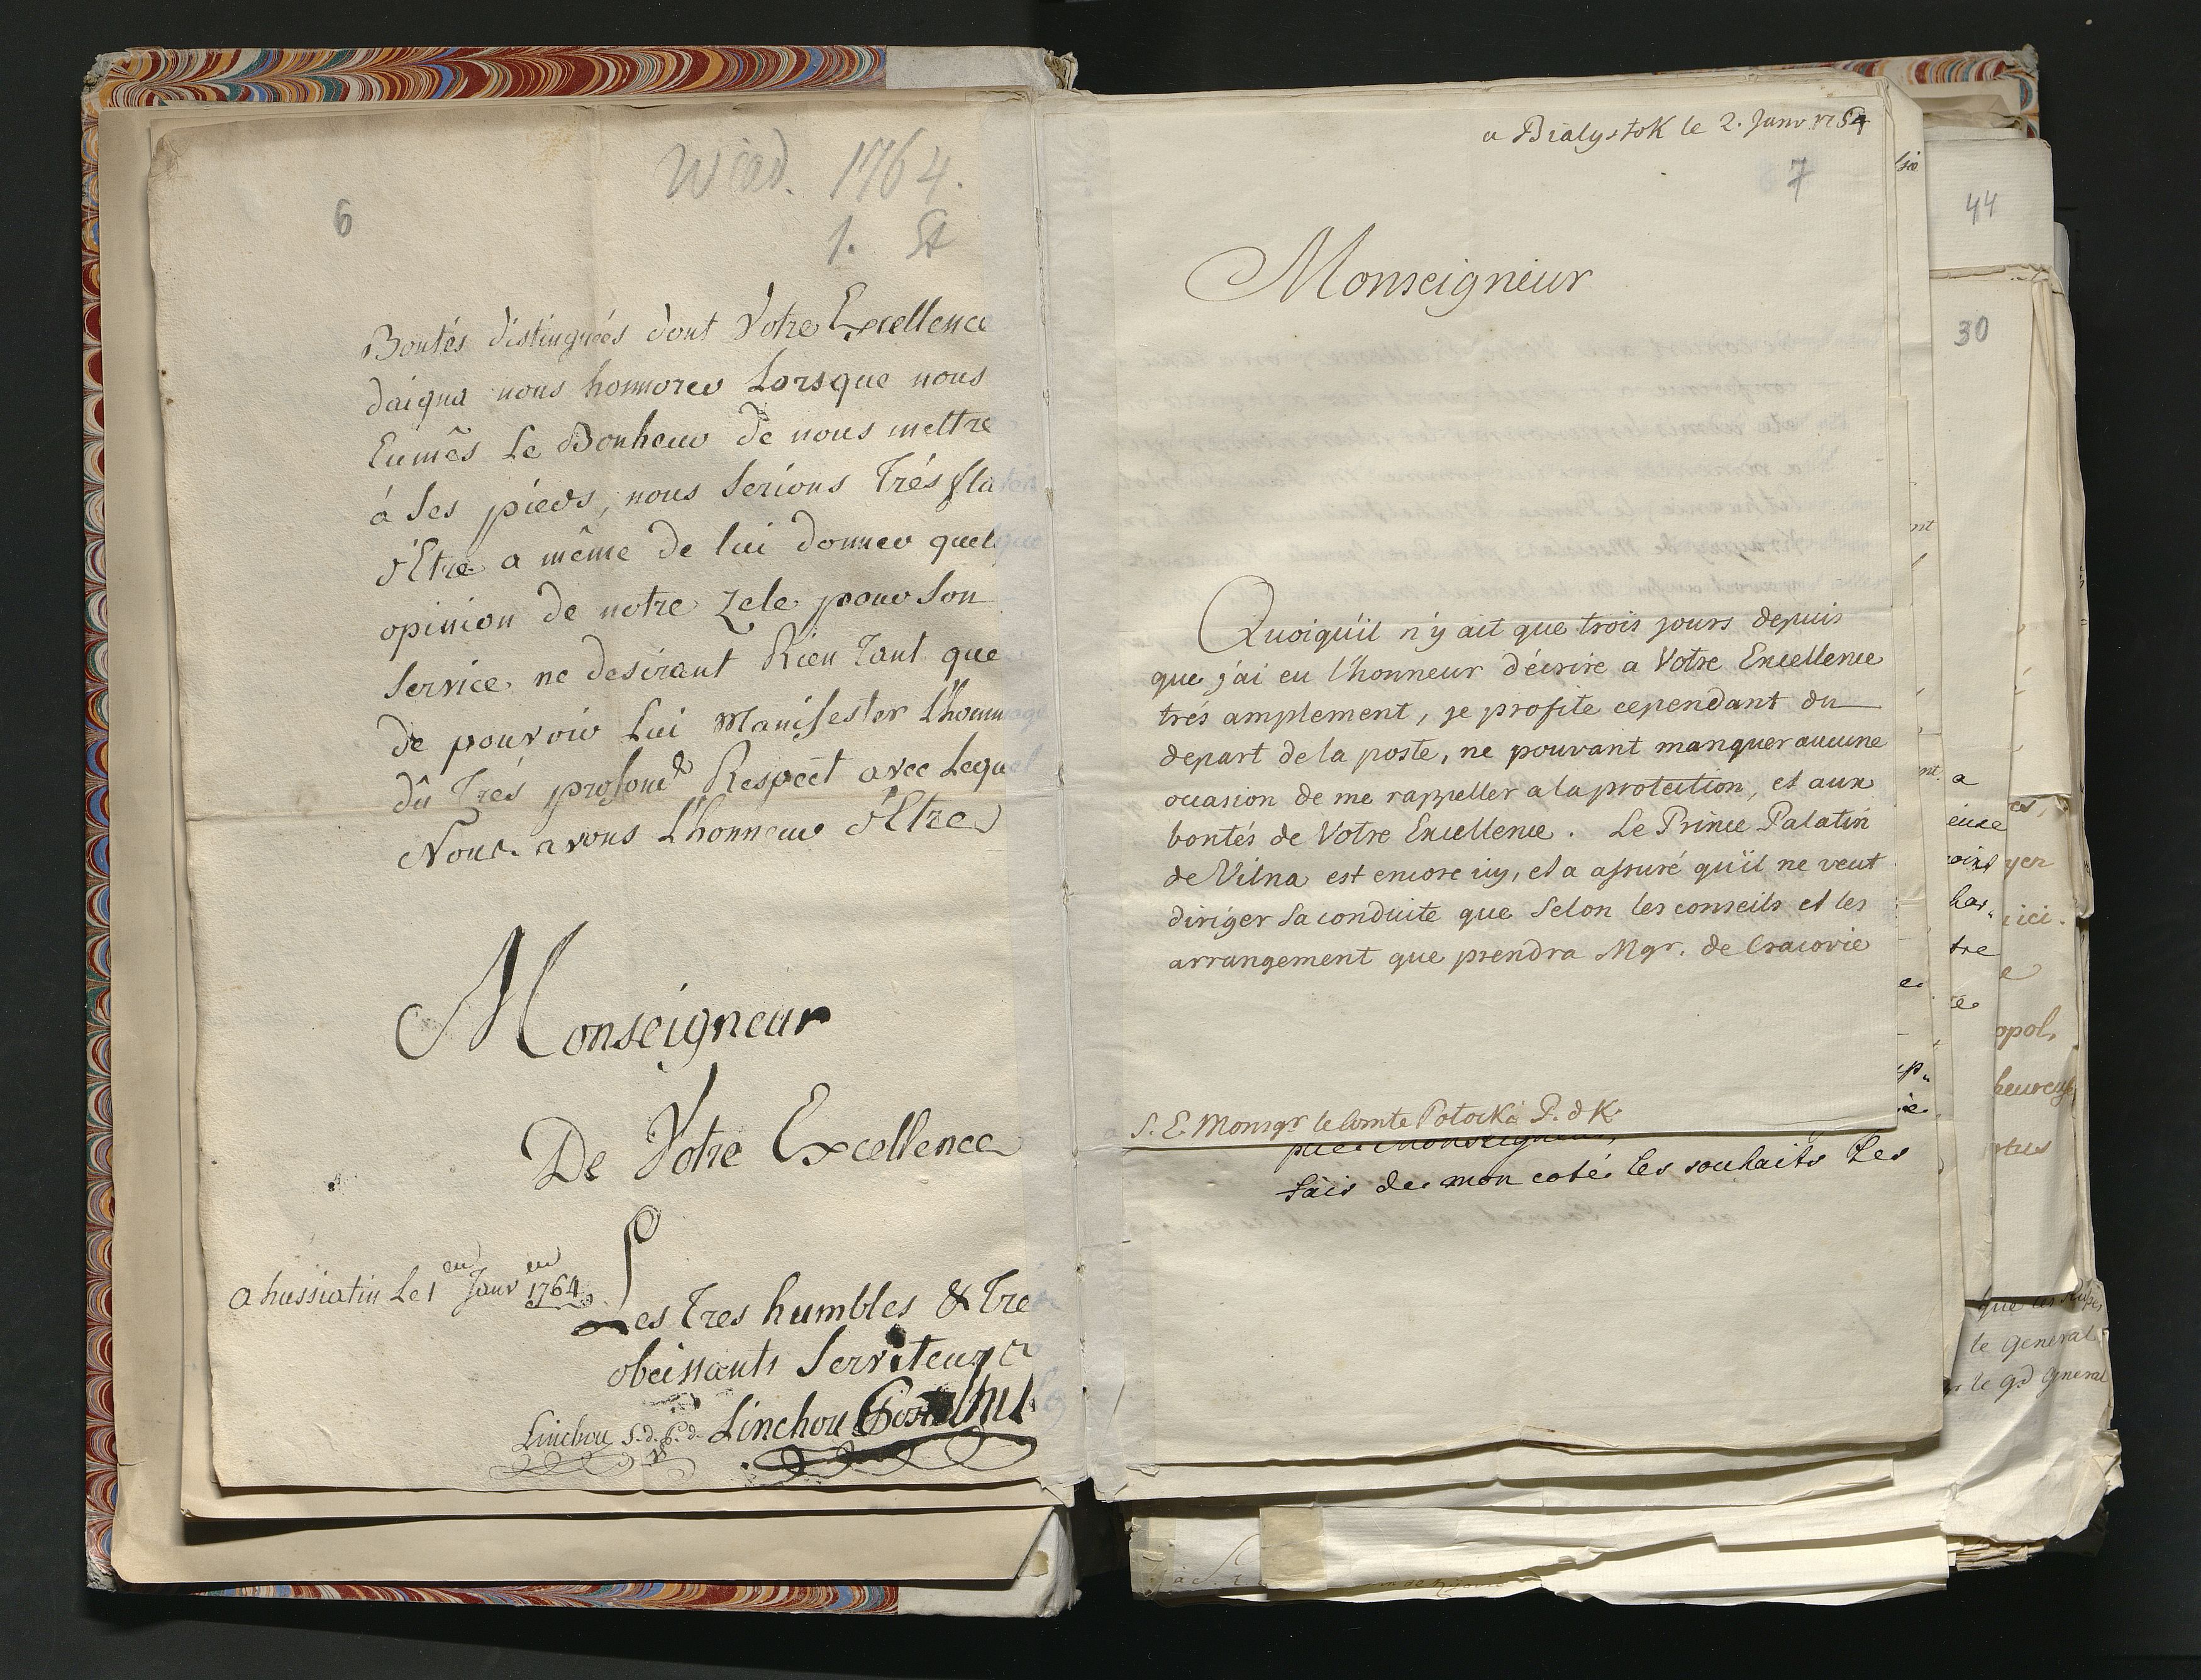 6
Wied. 1764.
1. St
Bontés distinguées dont Votre Excellence
daigna nous honnorer Lorsque nous
Eumês Le Bonheur de nous mettre
á Ses pieds, nous Serions Trés flatés
d'Etre a même de lui donner quelque
opinion de notre Zele pour Son
Service ne desirant Rien Tant que
de pouvoir Lui Manifester L'hommage
dû Trés profond Respect avec Lequel
Nous avons L'honneur d'Etre
Monseigneur
De Votre Excellence
a hussiatin Le 1er Janver 1764
Les Tres humbles & Tres
obeissants Serviteurs
Linchou S. d. Linchou
a Bialystok le 2. Janv. 1764
7
Monseigneur
Quoiqu'il n'y ait que trois jours depuis
que j'ai eu l'honneur d'écrire a Votre Excellence
trés amplement, je profite cependant du
depart de la poste, ne pouvant manquer aucune
occasion de me rappeller a la protection, et aux
bontés de Votre Excellence. Le Prince Palatin
de Vilna est encore icy, et a assuré qu'il ne veut
diriger sa conduite que selon les conseils et les
arrangement que prendra Mgr. de Cracovie
S. E. Monsgr le Comte Potocki P. d K.
fais de mon coté les souhaits les
44
30
nt
nt.
a
tre
yen
ici.
opol,
que les
le General
le gd General